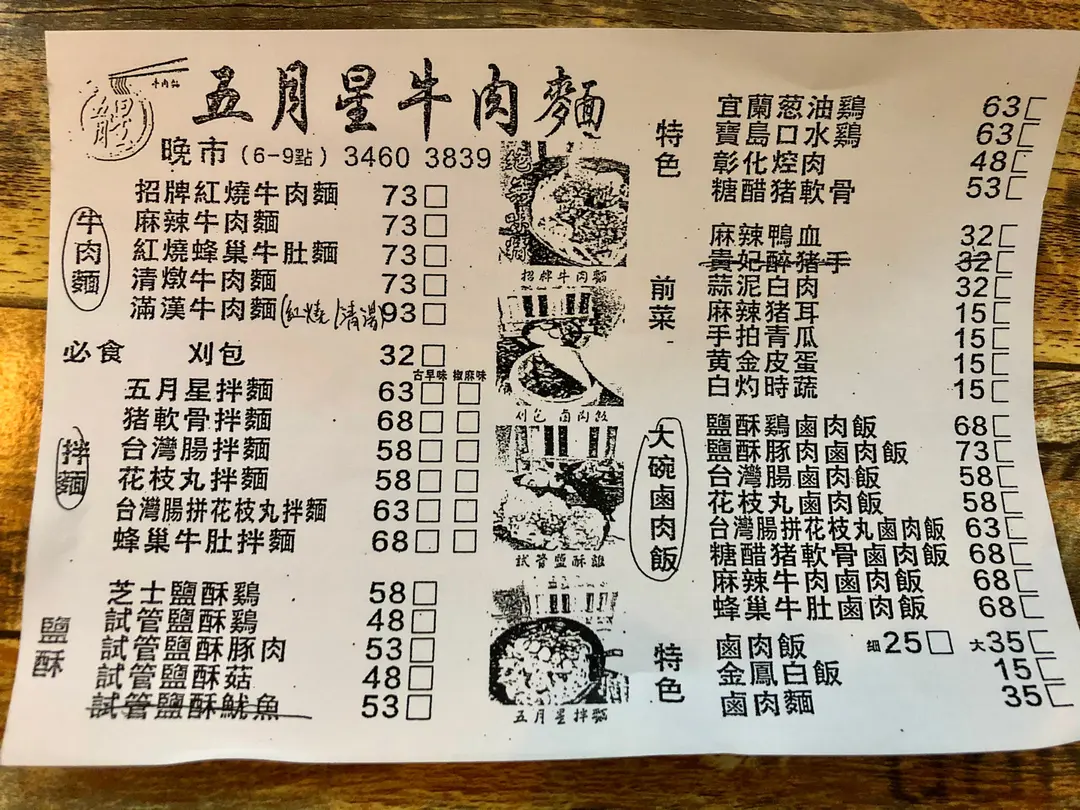 五月星牛肉麵
晚市（6-9點）3460 3839
牛肉麵
招牌紅燒牛肉麵 73
麻辣牛肉麵 73
紅燒蜂巢牛肚麵 73
清燉牛肉麵 73
滿漢牛肉麵(紅燒/清湯) 93
必食 刈包 32
古早味 椒麻味
拌麵
五月星拌麵 63
猪軟骨拌麵 68
台灣腸拌麵 58
花枝丸拌麵 58
台灣腸拼花枝丸拌麵 63
蜂巢牛肚拌麵 68
鹽酥
芝士鹽酥鷄 58
試管鹽酥鷄 48
試管鹽酥豚肉 53
試管鹽酥菇 48
試管鹽酥魷魚 53
招牌牛肉麵
刈包 鹵肉飯
試管鹽酥雞
五月星拌麵
特色
宜蘭葱油鷄 63
寶島口水鷄 63
彰化焢肉 48
糖醋猪軟骨 53
前菜
麻辣鴨血 32
貴妃醉猪手 32
蒜泥白肉 32
麻辣猪耳 15
手拍青瓜 15
黄金皮蛋 15
白灼時蔬 15
大碗鹵肉飯
鹽酥鷄鹵肉飯 68
鹽酥豚肉鹵肉飯 73
台灣腸鹵肉飯 58
花枝丸鹵肉飯 58
台灣腸拼花枝丸鹵肉飯 63
糖醋猪軟骨鹵肉飯 68
麻辣牛肉鹵肉飯 68
蜂巢牛肚鹵肉飯 68
特色
鹵肉飯 細25 大35
金鳳白飯 15
鹵肉麵 35